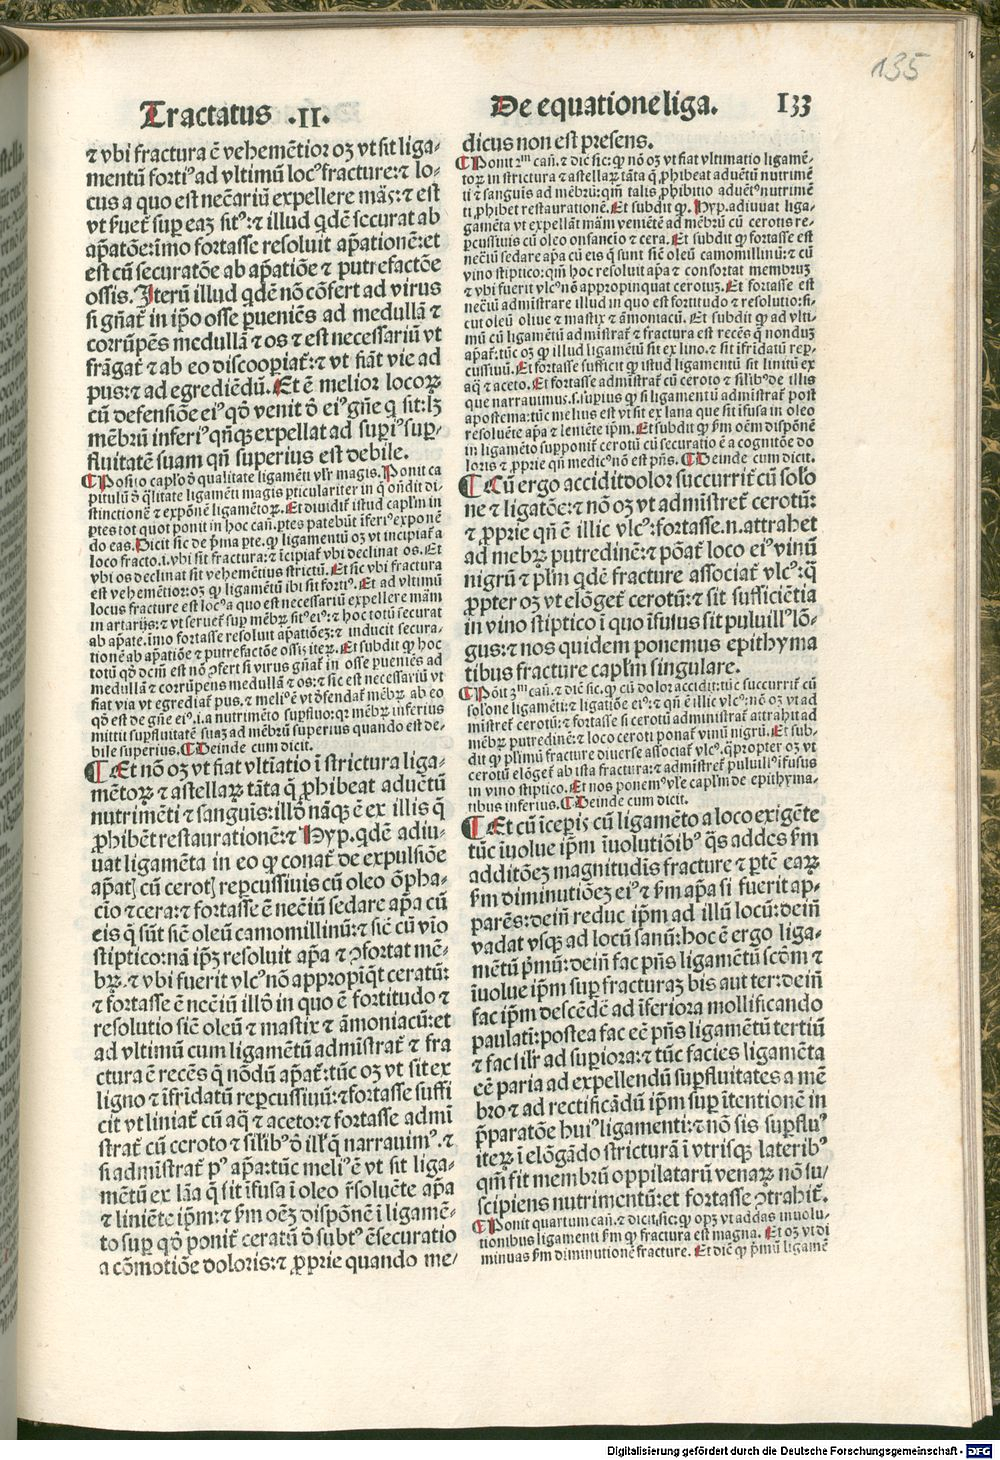 135
Tractatus .II.
De equatione liga. 133
⁊ vbi fractura ē vehemētior oꝫ vt sit liga-
mentū fortiꝰ ad vltimū locꝰ fracture:⁊ lo-
cus a quo est necāriū expellere māꝫ:⁊ est
vt ẜuet̄ sup̱ eaꝫ sitꝰ:⁊ illud qdē securat ab
ap̄atōe:imo fortasse resoluit ap̄ationē:et
est cū securatōe ab ap̄atiōe ⁊ putrefactōe
ossis. Iterū illud qdē nō cōfert ad virus
si gn̄at̄ in ip̄o osse perueniēs ad medullā ⁊
corrūpēs medullā ⁊ os ⁊ est necessariū vt
frāgat̄ ⁊ ab eo discoopiat̄:⁊ vt fiāt vie ad
pus:⁊ ad egrediēdū. Et ē melior locoꝝ
cū defensiōe eiꝰ qd̄ venit d̄ eiꝰ gn̄e q̄ sit:lꝫ
mēbrū inferiꝰ qn̄qꝫ expellat ad sup̱iꝰ sup̱-
fluitatē suam qn̄ superius est debile.
¶ Positio capl̄o d̄ qualitate ligamēti vl̄r magis. Ponit ca
pitulū d̄ q̄litate ligamēti magis p̱ticulariter in q̄ on̄dit di-
stinctionē ⁊ exponē ligamētoꝝ. Et diuidit̄ istud capl̄m in
p̱tes tot quot ponit in hoc can̄. p̱tes patebūt īferiꝰ exponē
do eas. Dicit sic de p̄ma p̱te. q̄ ligamentū oꝫ vt incipiat̄ a
loco fracto .i. vbi sit fractura:⁊ īcipiat̄ vbi declinat os. Et
vbi os declinat sit vehemētius strictū. Et sic vbi fractura
est vehemētior:oꝫ q̄ ligamētū ibi sit fortiꝰ. Et ad vltimū
locus fracture est locꝰ a quo est necessariū expellere mām
in artarijs:⁊ vt seruet̄ sup̱ mēbꝝ sitꝰ eiꝰ:⁊ hoc totū securat
ab ap̄ate. imo fortasse resoluit ap̄atiōeꝫ:⁊ inducit secura-
tionē ab ap̄atiōe ⁊ putrefactōe ossis iteꝝ. Et subdit q̄ hoc
totū qd̄ dcm̄ est nō ꝯfert si virus gn̄at̄ in osse pueniēs ad
medullā ⁊ corrūpens medullā ⁊ os:⁊ sic est necessariū vt
fiat via vt egrediat̄ pus. ⁊ meliꝰ ē vt d̄fendat̄ mēbꝝ ab eo
qd̄ est de gn̄e eiꝰ .i. a nutrimēto sup̱fluo:qꝛ mēbꝝ inferius
mittit sup̱fluitatē suaꝫ ad mēbrū superius quando est de-
bile superius. ¶ Deinde cum dicit.
¶ Et nō oꝫ vt fiat vltīatio ī strictura liga-
mētoꝝ ⁊ astellaꝝ tāta q̄ ꝓhibeat aduētū
nutrimēti ⁊ sanguīs:illd̄ nāqꝫ ē ex illis q̄
ꝓhibēt restaurationē:⁊ Hyp. qdē adiu-
uat ligamēta in eo q̄ conat̄ de expulsiōe
ap̄atꝫ cū cerotꝫ rep̱cussiuis cū oleo ōpha-
cio ⁊ cera:⁊ fortasse ē necīū sedare ap̄a cū
eis q̄ sūt sic̄ oleū camomillinū:⁊ sic̄ cū vīo
stiptico:nā ip̄ꝫ resoluit ap̄a ⁊ ꝯfortat mē-
bꝝ. ⁊ vbi fuerit vlcꝰ nō appropiqt̄ ceratū:
⁊ fortasse ē necīū illd̄ in quo ē fortitudo ⁊
resolutio sic̄ oleū ⁊ mastix ⁊ āmoniacū:et
ad vltimū cum ligamētū admīstrat̄ ⁊ fra
ctura ē recēs q̄ nōdū ap̄at̄:tūc oꝫ vt sit ex
ligno ⁊ īfrīdatū rep̱cussiuū:⁊fortasse suffi
cit vt liniat̄ cū aq̄ ⁊ aceto:⁊ fortasse admī
strat̄ cū ceroto ⁊ sil̄ibꝰ d̄ ill̄ q̄ narrauimꝰ.⁊
si admīstrat̄ pꝰ ap̄a:tūc meliꝰ ē vt sit liga-
mētū ex lāa q̄ sit īfusa ī oleo r̄soluēte ap̄a
⁊ liniēte ip̄m:⁊ ẜm oēꝫ dispōnē ī ligamē-
to sup̱ qd̄ ponit̄ ceratū d̄ subtꝰ ē securatio
a cōmotiōe doloris:⁊ ꝓprie quando me-
dicus non est presens.
¶ Ponit 2ᵐ can̄. ⁊ dic̄ sic:q̄ nō oꝫ vt fiat vltimatio ligamē-
toꝝ in strictura ⁊ astellaꝝ tāta q̄ ꝓhibeat aduētū nutrimē
ti ⁊ sanguīs ad mēbrū:qm̄ talis ꝓhibitio aduētꝰ nutrimē
ti ꝓhibet restaurationē. Et subdit q̄. Hyp. adiuuat liga-
gamēta vt expellāt mām veniētē ad mēbrū cū cerotis re-
p̱cussiuis cū oleo onfancio ⁊ cera. Et subdit q̄ fortasse est
necīū sedare ap̄a cū eis q̄ sunt sic̄ oleū camomillinū:⁊ cū
vino stiptico:qm̄ hoc resoluit ap̄a ⁊ confortat membruꝫ
⁊ vbi fuerit vlcꝰ nō appropinquat cerotuꝫ. Et fortasse est
necīū admīstrare illud in quo est fortitudo ⁊ resolutio:si-
cut oleū oliue ⁊ mastix ⁊ āmoniacū. Et subdit q̄ ad vlti-
mū cū ligamētū admīstrat̄ ⁊ fractura est recēs q̄ nonduꝫ
ap̄at̄:tūc oꝫ q̄ illud ligamētū sit ex lino.⁊ sit īfrīdatū rep̱-
cussiuū. Et fortasse sufficit q̄ istud ligamentū sit linitū ex
aq̄ ⁊ aceto. Et fortasse admīstrat̄ cū ceroto ⁊ sil̄ibꝰ de illis
que narrauimus .s. supius q̄ si ligamentū admīstrat̄ post
apostema:tūc melius est vt sit ex lana que sit īfusa in oleo
resoluēte ap̄a ⁊ leniēte ip̄m. Et subdit q̄ ẜm oēm dispōnē
in ligamēto supponit̄ cerotū cū securatio ē a cognitōe do
loris ⁊ ꝓprie qn̄ medicꝰ nō est pn̄s. ¶ Deinde cum dicit.
¶ Cū ergo acciditdolor succurrit̄ cū solo
ne ⁊ ligatōe:⁊ nō oꝫ vt admīstret̄ cerotū:
⁊ ꝓprie qn̄ ē illic vlcꝰ:fortasse .n. attrahet
ad mēbꝝ putredinē:⁊ pōat̄ loco eiꝰ vinū
nigrū ⁊ pl̄m qdē fracture associat̄ vlcꝰ:q̄
ꝓpter oꝫ vt elōget̄ cerotū:⁊ sit sufficiētia
in vino stiptico ī quo īfusus sit puluillꝰ lō-
gus:⁊ nos quidem ponemus epithyma
tibus fracture capl̄m singulare.
¶ Pōit 3ᵐ can̄. ⁊ dic̄ sic. q̄ cū dolor accidit:tūc succurrit̄ cū
solōne ligamēti:⁊ ligatiōe eiꝰ:⁊ qn̄ ē illic vlcꝰ:nō oꝫ vt ad
mīstret̄ cerotū:⁊ fortasse si cerotū administrat̄ attrahit ad
mēbꝝ putredinē:⁊ loco ceroti ponat̄ vinū nigrū. Et sub-
dit q̄ pl̄imū fracture diuerse associat̄ vlcꝰ. q̄propter oꝫ vt
cerotū elōget̄ ab ista fractura:⁊ admīstret̄ puluillꝰ īfusus
in vino stiptico. Et nos ponemꝰ vl̄e capl̄m de epithyma-
tibus inferius. ¶ Deinde cum dicit.
¶ Et cū īceperis cū ligamēto a loco exigēte
tūc īuolue ip̄m īuolutiōībꝰ q̄s addes ẜm
additōeꝫ magnitudīs fracture ⁊ p̱tē eaꝝ
ẜm diminutiōeꝫ eiꝰ ⁊ ẜm ap̄a si fuerit ap-
parēs:dein̄ reduc ip̄m ad illū locū:dein̄
vadat vsqꝫ ad locū sanū:hoc ē ergo liga-
mētū p̄mū:dein̄ fac pn̄s ligamētū scd̄m ⁊
īuolue ip̄m sup̱ fracturaꝫ bis aut ter:dein̄
fac ip̄m descēdē ad īferiora mollificando
paulatī:postea fac eē pn̄s ligamētū tertiū
⁊ fac sil̄r ad sup̱iora:⁊ tūc facies ligamēta
eē paria ad expellendū sup̱fluitates a mē
bro ⁊ ad rectificādū ip̄m sup̱ ītentionē in
p̄paratōe huiꝰ ligamenti:⁊ nō sis sup̱fluꝰ
iteꝝ ī elōgādo stricturā ī vtrisqꝫ lateribꝰ
qm̄ fit membrū oppilatarū venaꝝ nō su-
scipiens nutrimentū:et fortasse ꝯtrahit̄.
¶ Ponit quartum can̄. ⁊ dicit sic:q̄ opꝫ vt addas inuolu-
tionibus ligamenti ẜm q̄ fractura est magna. Et oꝫ vt di
minuas ẜm diminutionē fracture. Et dic̄ q̄ p̄mū ligamē
Digitalisierung gefördert durch die Deutsche Forschungsgemeinschaft - DFG